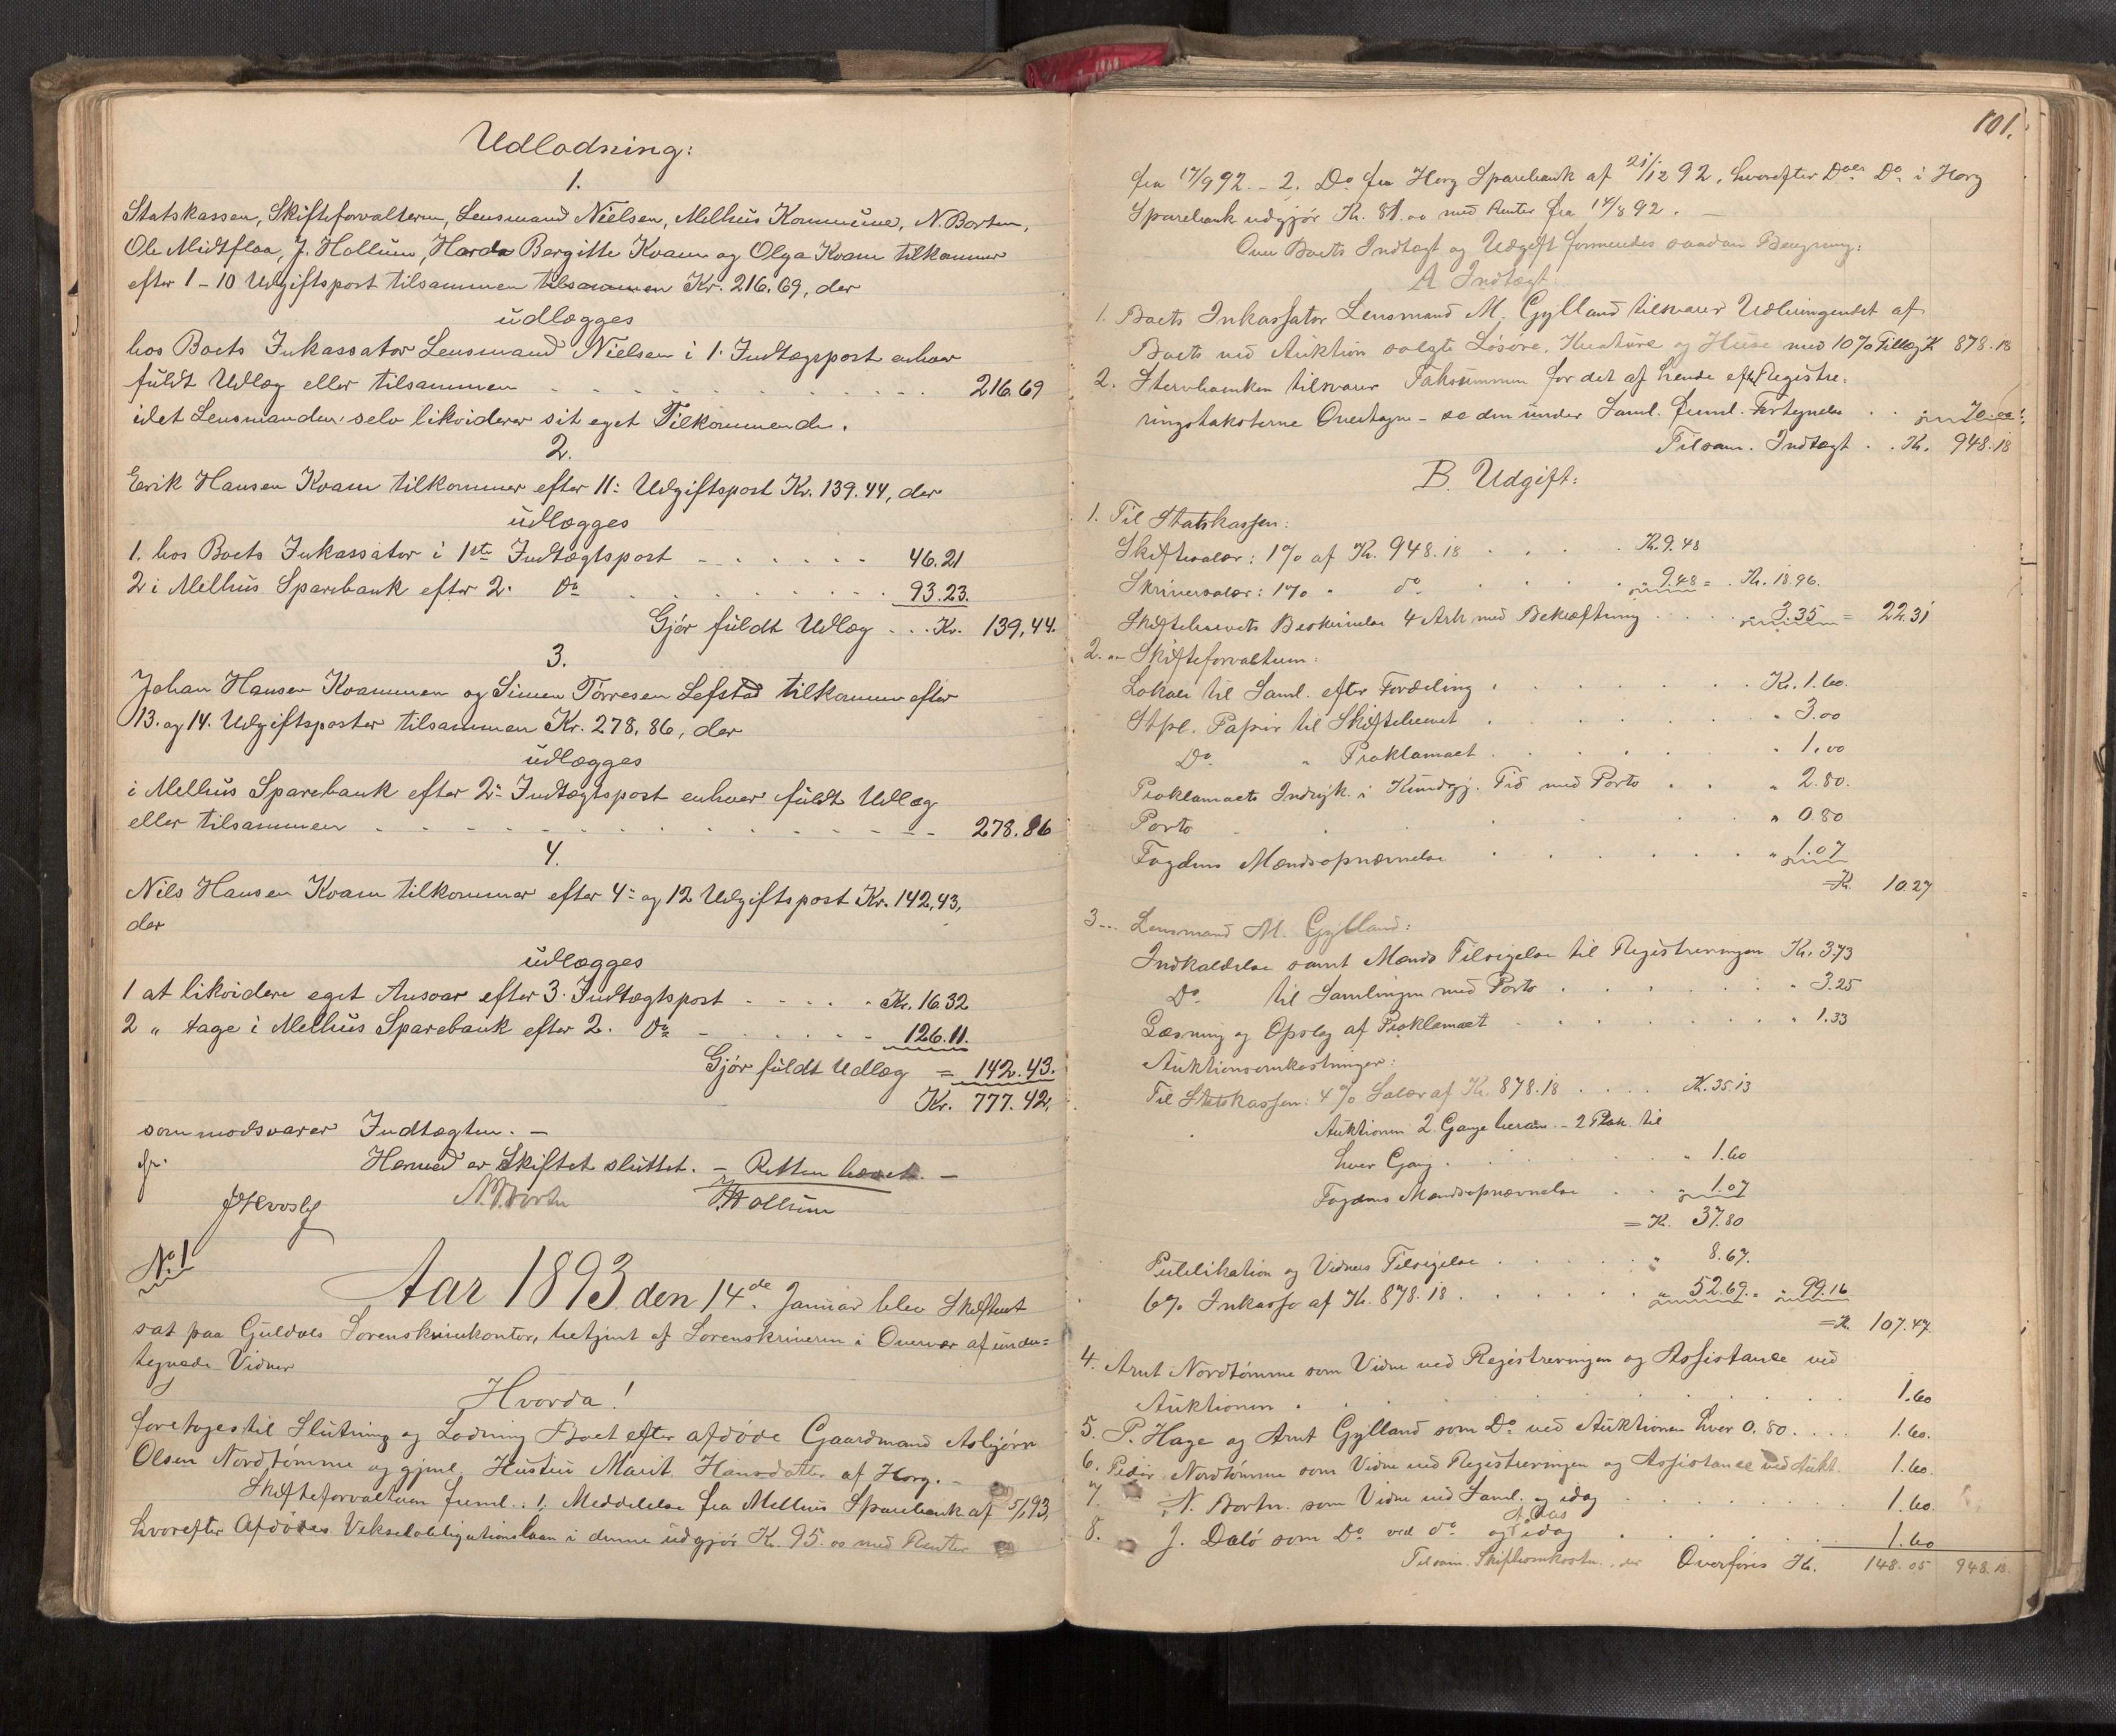 Udlodning:
1.
Statskassen, Skifteforvalteren, Lensmand Nielsen, Melhus Kommune, N. Borten,
Ole Midtflaa, J. Hollum, Harda Bergitte Kvam og Olga Kvam tilkommer
efter 1-10 Udgiftspost tilsammen tilsammen Kr. 216.69, der
udlægges
hos Boets Inkassator Lensmand Nielsen i 1. Indtægtspost enhver
fuldt Udlæg eller tilsammen 216.69
idet Lensmanden selv likviderer sit eget Tilkommende.
2.
Erik Hansen Kvam tilkommer efter 11: Udgiftspost Kr. 139.44, der
udlægges
1. hos Boets Inkassator i 1ste Indtægtspost 46.21
2 i Melhus Sparebank efter 2. Do 93.23.
Gjør fuldt Udlæg . . . Kr. 139,44.
3.
Johan Hansen Kvammen og Simen Torresen Lefstad tilkommer efter
13. og 14. Udgiftsposter tilsammen Kr. 278,86, der
udlægges
i Melhus Sparebank efter 2: Indtægtspost enhver fuldt Udlæg
eller tilsammen 278.86
4.
Nils Hansen Kvam tilkommer efter 4: og 12 Udgiftspost Kr. 142,43,
der
udlægges
1 at likvidere eget Ansvar efter 3. Indtægtspost Kr. 16.32
2 " tage i Melhus Sparebank efter 2. Do 126.11.
Gjør fuldt Udlæg = 142.43.
Kr. 777.42.
som modsvarer Indtægten. —
Hermed er Skiftet sluttet. — Retten hævet. —
N. Borten J. Hollum
No. 1
Aar 1893 den 14de Januar blev Skifteret
sat paa Guldals Sorenskriverkontor, betjent af Sorenskriveren i Overvær af under-
tegnede Vidner
Hvorda!
foretoges til Slutning og Lodning Boet efter afdøde Gaardmand Asbjørn
Olsen Nordtømme og gjenl. Hustru Marit Hansdatter af Horg. —
Skifteforvalteren freml.: 1, Meddelelse fra Melhus Sparebank af 5/1 93,
hvorefter Afdødes Vekselobligationslaan i denne udgjør Kr. 95.00 med Renter
101.
fra 17/9 92. - 2. Do fra Horg Sparebank af 21/12 92, hvorefter Do Do i Horg
Sparebank udgjør Kr. 81.00 med Renter fra 14/8 92. —
Over Boets Indtægt og Udgift formeredes saadan Beregning:
A Indtægt:
1. Boets Inkassator Lensmand M. Gylland tilsvarer Udbringendet af
Boets ved Auktion solgte Løsøre, Kreature og Huse med 10% Tillæg K 878.18
2. Stervboenken tilsvarer Taksummen for det af hende efter Registre-
ringstaksterne Overtagne - se den under Saml. freml. Fortegnelse . . 70.00
Tilsam. Indtægt . . Kr. 948.18
B. Udgift:
1. Til Statskassen:
Skiftesalær: 1% af Kr. 948.18 . . . Kr. 9.48
Skriversalær: 1% " do . . . " 9.48 = . Kr. 18 96.
Skiftebrevets Beskrivelse 4 Ark med Bekræftning . . . 3.35 = 22.31
2. " Skifteforvalteren:
Lokale til Saml. efter Fordeling . Kr. 1.60.
Stpl. Papir til Skiftebrevet . " 3.00
Do. " Proklamaet . " 1.00
Proklamaets Indryk. i Kundgj. Tid. med Porto . " 2.80.
Porto " 0.80
Fogdens Mændsopnævnelse . " 1.07
= Kr. 10.27
3 -- Lensmand M. Gylland:
Indkaldelse samt Mænds Tilsigelse til Registreringen Kr. 3.73
Do. til Samlingen med Porto . " 3.25
Læsning og Opslag af Proklamaet . " 1.33
Auktionsomkostninger:
Til Statskassen: 4% Salær af Kr. 878.18 . . . . K. 35.13
Auktionen 2 Gange beram. - 2 Plak. til
hver Gang . " 1.60
Fogdens Mændsopnævnelse . . " 1.07
= K. 37.80
Publikation og Vidners Tilsigelse . " 8.67.
6% Inkasso af Kr. 878.18 . " 52.69. " 99.16
= K. 107.47.
4. Arnt Nordtømme som Vidne ved Registreringen og Assistance ved
Auktionen . 1.60
5. P. Hage og Arnt Gylland som Do. ved Auktionen hver 0.80. . . . 1.60.
6. Peder Nordtømme som Vidne ved Registreringen og Assistance ved Aukt. 1.60.
7. N. Borten som Vidne ved Saml. og idag . 1.60.
8. J. Dalø som Do. ved do. og idag . 1.60
Tilsam. Skifteomkostn. der Overføres Kr. 148.05 948.18.